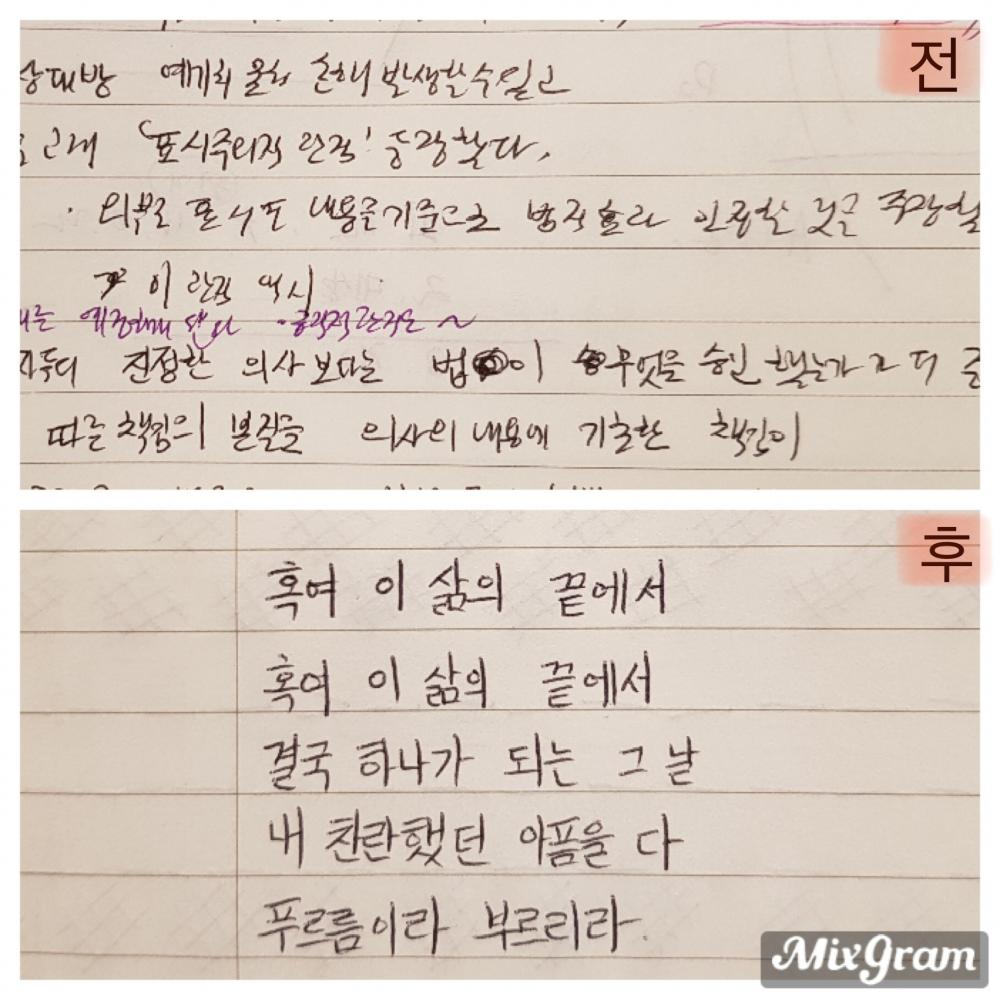 전
상대방 예기치 못한 손해 발생할 수 있고
고개 '표시주의적 관점' 등장한다.
· 외부로 표시된 내용을 기준으로 법적 효과 인정할 것을 주장
이 관점 역시
진정한 의사 보다는 법이 무엇을 승인 했는가
따른 책임의 본질을 의사의 내용에 기초한 책임이
후
혹여 이 삶의 끝에서
혹여 이 삶의 끝에서
결국 하나가 되는 그 날
내 찬란했던 아픔을 다
푸르름이라 부르리라.
MixGram